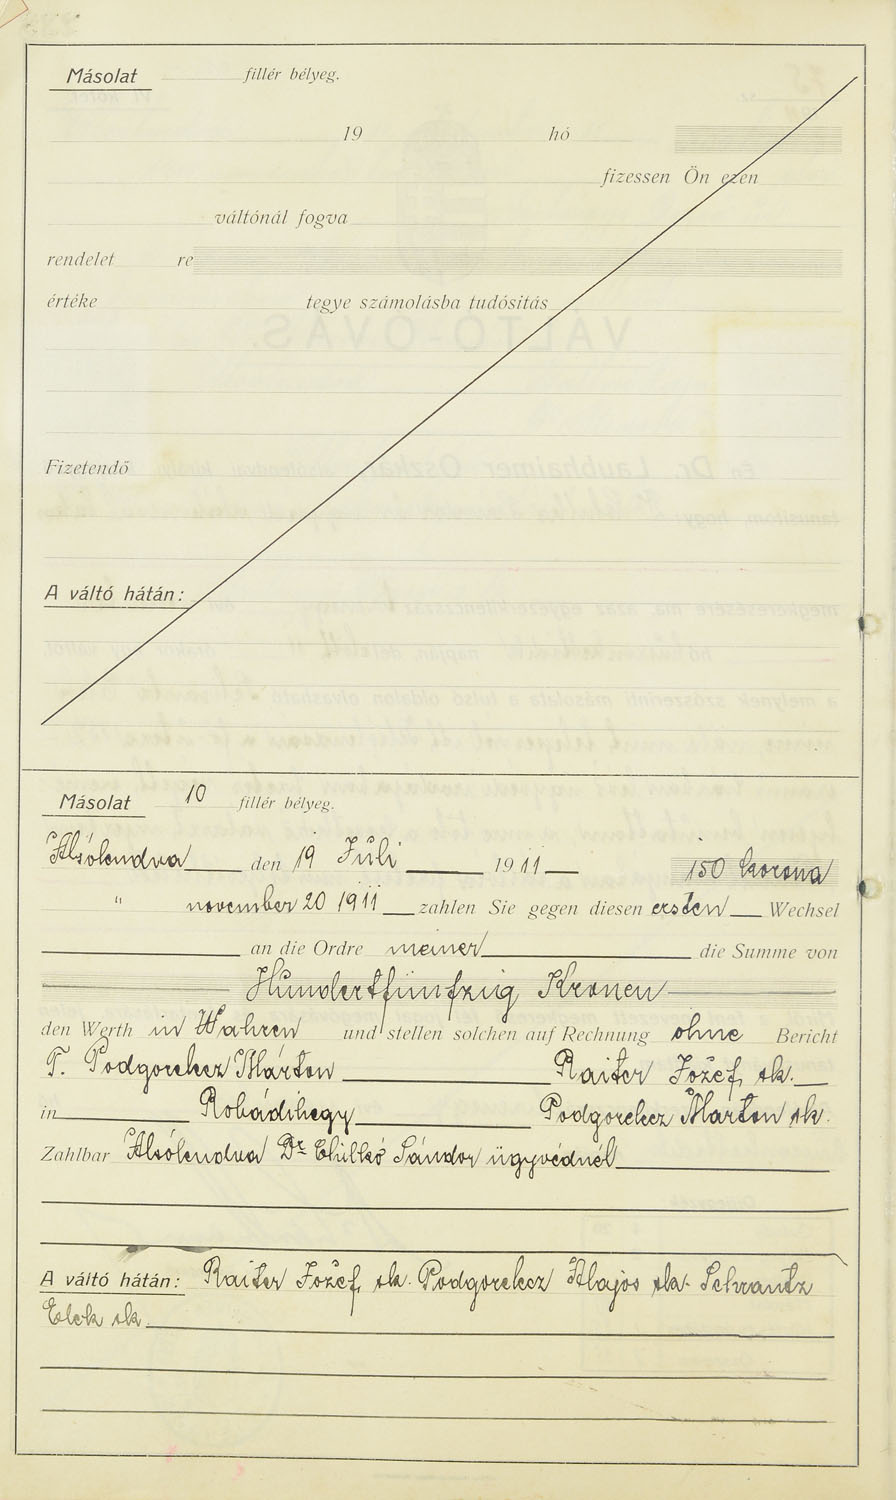 Másolat fillér bélyeg.
19 hó
fizessen Ön ezen
váltónál fogva
rendelet re
értéke tegye számolásba tudósitás
Fizetendő
A váltó hátán:
Másolat 10 fillér bélyeg.
Alsólendva den 19 Juli 1911 150 korona
" november 20 1911 zahlen Sie gegen diesen ersten Wechsel
an die Ordre meiner die Summe von
Hundertfünfzig Kronen
den Werth in Wahren und stellen solchen auf Rechnung ohne Bericht
T. Podgorelecz Márton Raiter József sk.
in Robádihegy Podgorelecz Márton sk.
Zahlbar Alsólendva Dr Sándor ügyvédnél
A váltó hátán: Raiter József sk. Podgorelecz Alajos sk. Schrantz
Elek sk.